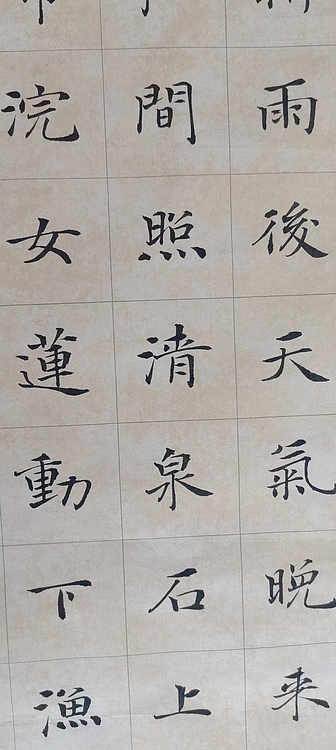 雨後天氣晚来
間照清泉石上
浣女蓮動下漁